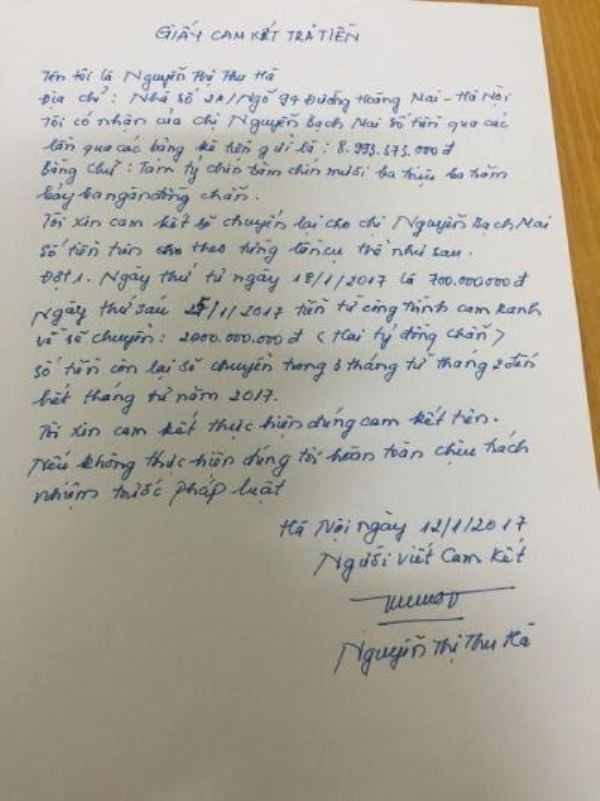 GIẤY CAM KẾT TRẢ TIỀN
Tên tôi là Nguyễn Thị Thu Hà
Địa chỉ: Nhà số 2A/Ngõ 94 Đường Hoàng Mai - Hà Nội
Tôi có nhận của chị Nguyễn Bạch Mai số tiền qua các
lần qua các bảng kê tiền gửi là: 8.993.373.000đ
Bằng chữ: Tám tỷ chín trăm chín mươi ba triệu ba trăm
bảy ba ngàn đồng chẵn.
Tôi xin cam kết sẽ chuyển lại cho chị Nguyễn Bạch Mai
số tiền trên theo từng lần cụ thể như sau.
Đợt 1. Ngày thứ tư ngày 18/1/2017 là 700.000.000đ
Ngày thứ sáu /1/2017 tiền từ công trình cam ranh
về sẽ chuyển: 2000.000.000đ (Hai tỷ đồng chẵn)
Số tiền còn lại sẽ chuyển trong 3 tháng từ tháng 2 đến
hết tháng tư năm 2017.
Tôi xin cam kết thực hiện đúng cam kết trên.
Nếu không thực hiện đúng tôi hoàn toàn chịu trách
nhiệm trước pháp luật
Hà Nội ngày 12/1/2017
Người viết Cam Kết
Nguyễn Thị Thu Hà